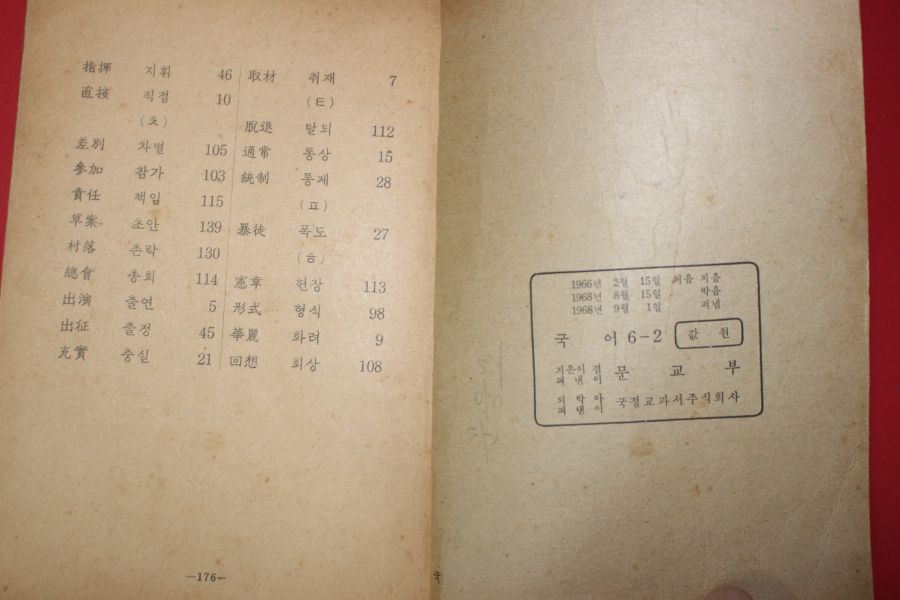 指揮 지휘 46
直接 직접 10
(ㅊ)
差別 차별 105
參加 참가 103
責任 책임 115
草案 초안 139
村落 촌락 130
總會 총회 114
出演 출연 5
出征 출정 45
充實 충실 21
取材 취재 7
(ㅌ)
脫退 탈퇴 112
通常 통상 15
統制 통제 28
(ㅍ)
暴徒 폭도 27
(ㅎ)
憲章 헌장 113
形式 형식 98
華麗 화려 9
回想 회상 108
—176—
1966년 2월 15일 처음 지음
1968년 8월 15일 박음
1968년 9월 1일 펴냄
국 어 6-2 값 원
지은이 겸
펴 낸 이 문 교 부
되 박 아
펴 낸 이 국정교과서주식회사
국